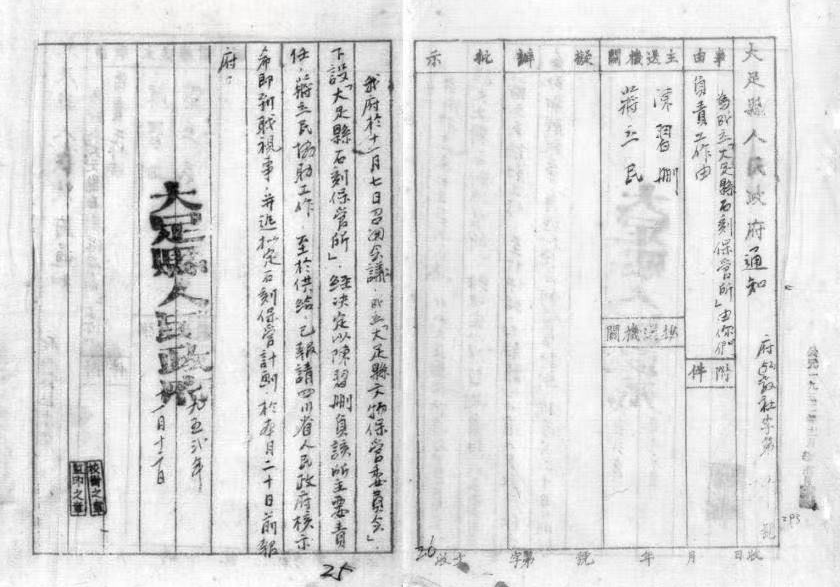 大足縣人民政府通知
府 教社字第 號
事由
為成立「大足縣石刻保管所」由你們
負責工作由
附件
主送機關
陳習刪
蔣立民
抄送機關
擬辦
批示
收日 月 年 號 第字 文收
我府於十一月七日召開會議，成立「大足縣文物保管委員會」，
下設「大足縣石刻保管所」，經決定以陳習刪負該所主要責
任，蔣立民協助工作，至於供給，已報請四川省人民政府核示
希即到職視事，并迅擬定石刻保管計劃，於本月二十日前報
府。
大足縣人民政府
一九五弍年
月十一日
校對之章
監印之章
25
26
293